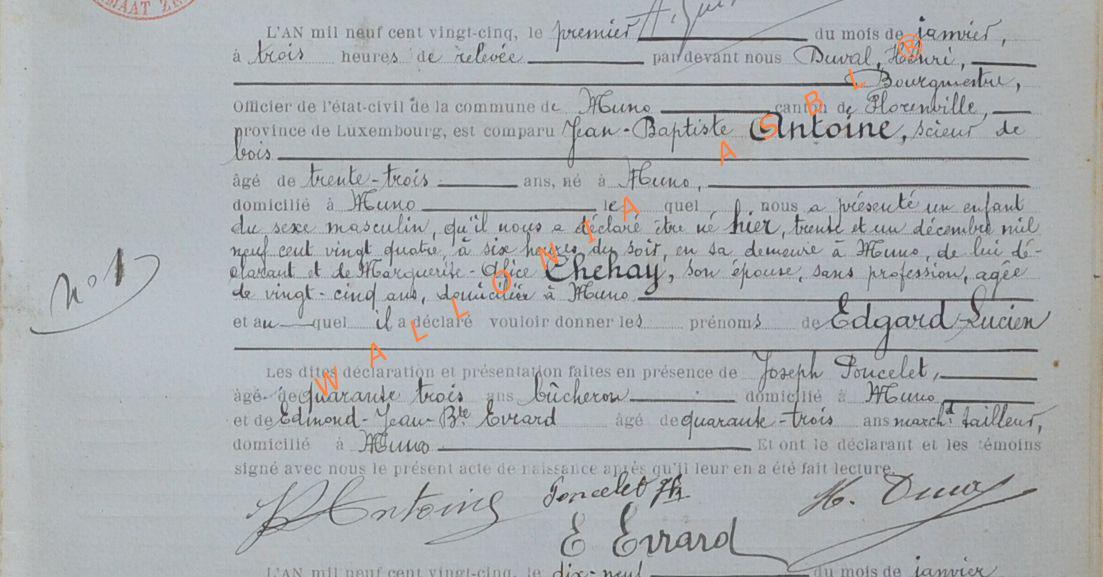 MAAT ZE
L'AN mil neuf cent vingt-cinq, le premier du mois de janvier,
à trois heures de relevée par devant nous Duval, Henri,
Bourgmestre,
Officier de l'état-civil de la commune de Muno canton de Florenville,
province de Luxembourg, est comparu Jean-Baptiste Antoine, scieur de
bois
âgé de trente-trois ans, né à Muno,
domicilié à Muno le quel nous a présenté un enfant
du sexe masculin, qu'il nous a déclaré être né hier, trente et un décembre mil
neuf cent vingt quatre, à six heures du soir, en sa demeure à Muno, de lui dé-
clarant et de Marguerite-Alice Chehay, son épouse, sans profession, agée
de vingt-cinq ans, domiciliée à Muno
et au quel il a déclaré vouloir donner les prénoms de Edgard-Lucien
N° 1
Les dites déclaration et présentation faites en présence de Joseph Poncelet,
âgé de quarante trois ans bûcheron domicilié à Muno,
et de Edmond-Jean-Bte Evrard âgé de quarante-trois ans marchd tailleur,
domicilié à Muno Et ont le déclarant et les témoins
signé avec nous le présent acte de naissance après qu'il leur en a été fait lecture.
Antoine Poncelet H. Duval
E Evrard
L'AN mil neuf cent vingt-cinq, le dix-neuf du mois de janvier
WALLONIA ASBL ®